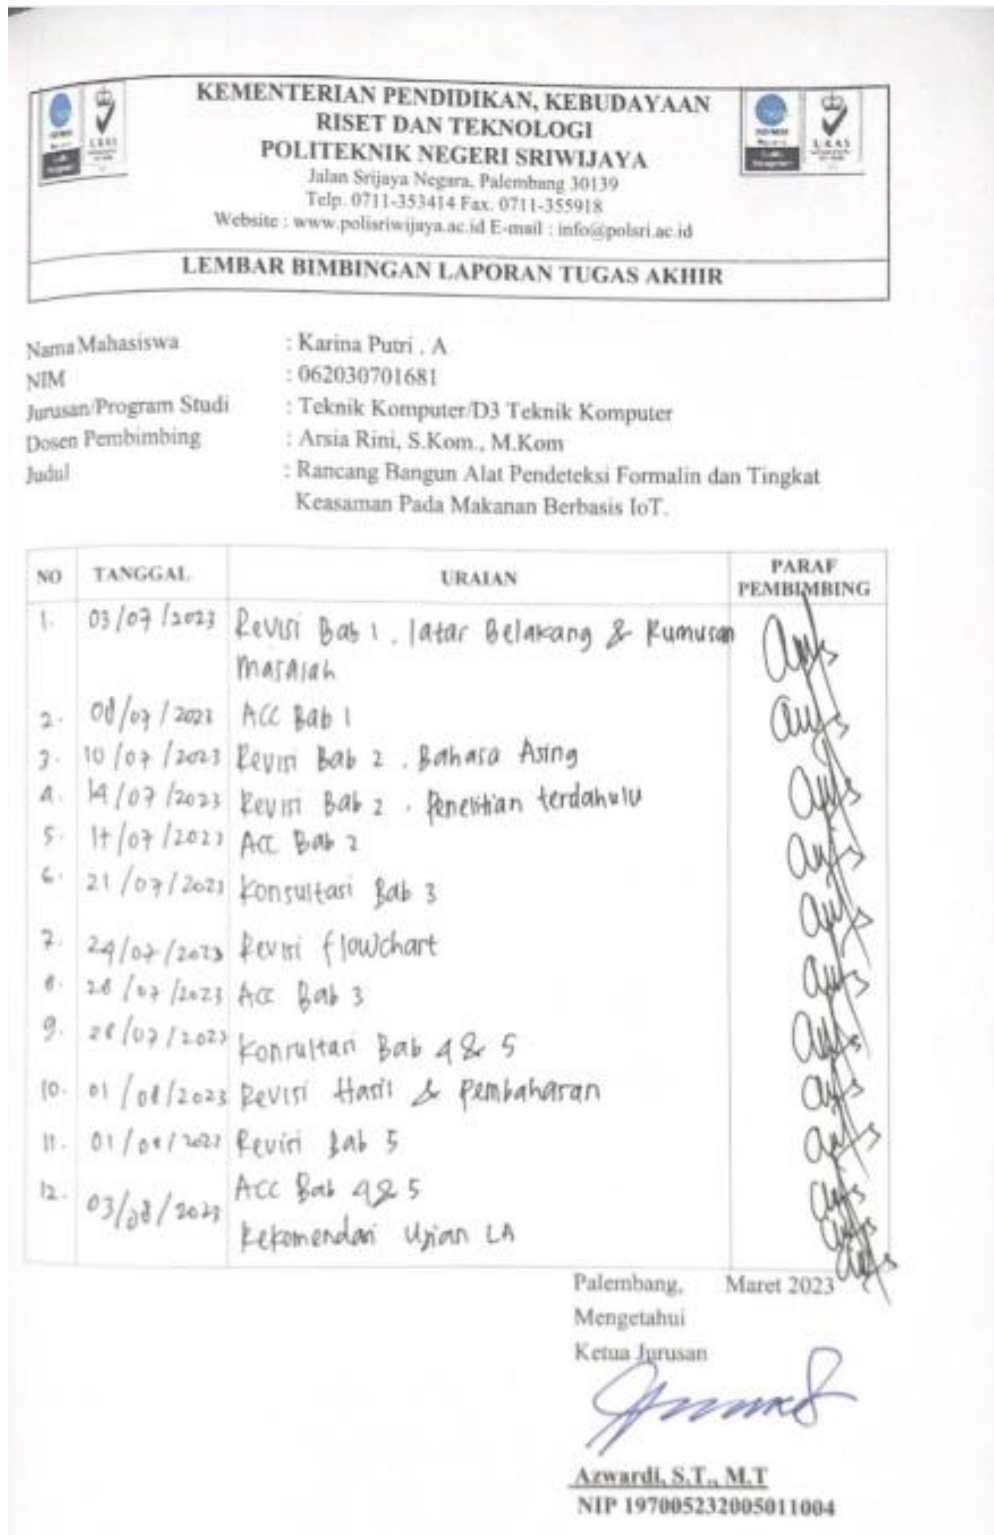 KEMENTERIAN PENDIDIKAN, KEBUDAYAAN
RISET DAN TEKNOLOGI
POLITEKNIK NEGERI SRIWIJAYA
Jalan Srijaya Negara, Palembang 30139
Telp. 0711-353414 Fax. 0711-355918
Website : www.polisriwijaya.ac.id E-mail : info@polsri.ac.id
LEMBAR BIMBINGAN LAPORAN TUGAS AKHIR
Nama Mahasiswa : Karina Putri . A
NIM : 062030701681
Jurusan/Program Studi : Teknik Komputer/D3 Teknik Komputer
Dosen Pembimbing : Arsia Rini, S.Kom., M.Kom
Judul : Rancang Bangun Alat Pendeteksi Formalin dan Tingkat
Keasaman Pada Makanan Berbasis IoT.
NO TANGGAL URAIAN PARAF PEMBIMBING
1. 03/07/2023 Revisi Bab 1. latar Belakang & Rumusan
masalah
2. 08/07/2023 ACC Bab 1
3. 10/07/2023 Revisi Bab 2. Bahasa Asing
4. 14/07/2023 Revisi Bab 2. Penelitian terdahulu
5. 17/07/2023 Acc Bab 2
6. 21/07/2023 Konsultasi Bab 3
7. 24/07/2023 Revisi flowchart
8. 28/07/2023 Acc Bab 3
9. 28/07/2023 Konsultasi Bab 4 & 5
10. 01/08/2023 Revisi Hasil & Pembahasan
11. 01/08/2023 Revisi Bab 5
12. 03/08/2023 Acc Bab 4 & 5
Rekomendasi Ujian LA
Palembang, Maret 2023
Mengetahui
Ketua Jurusan
Azwardi, S.T., M.T
NIP 197005232005011004